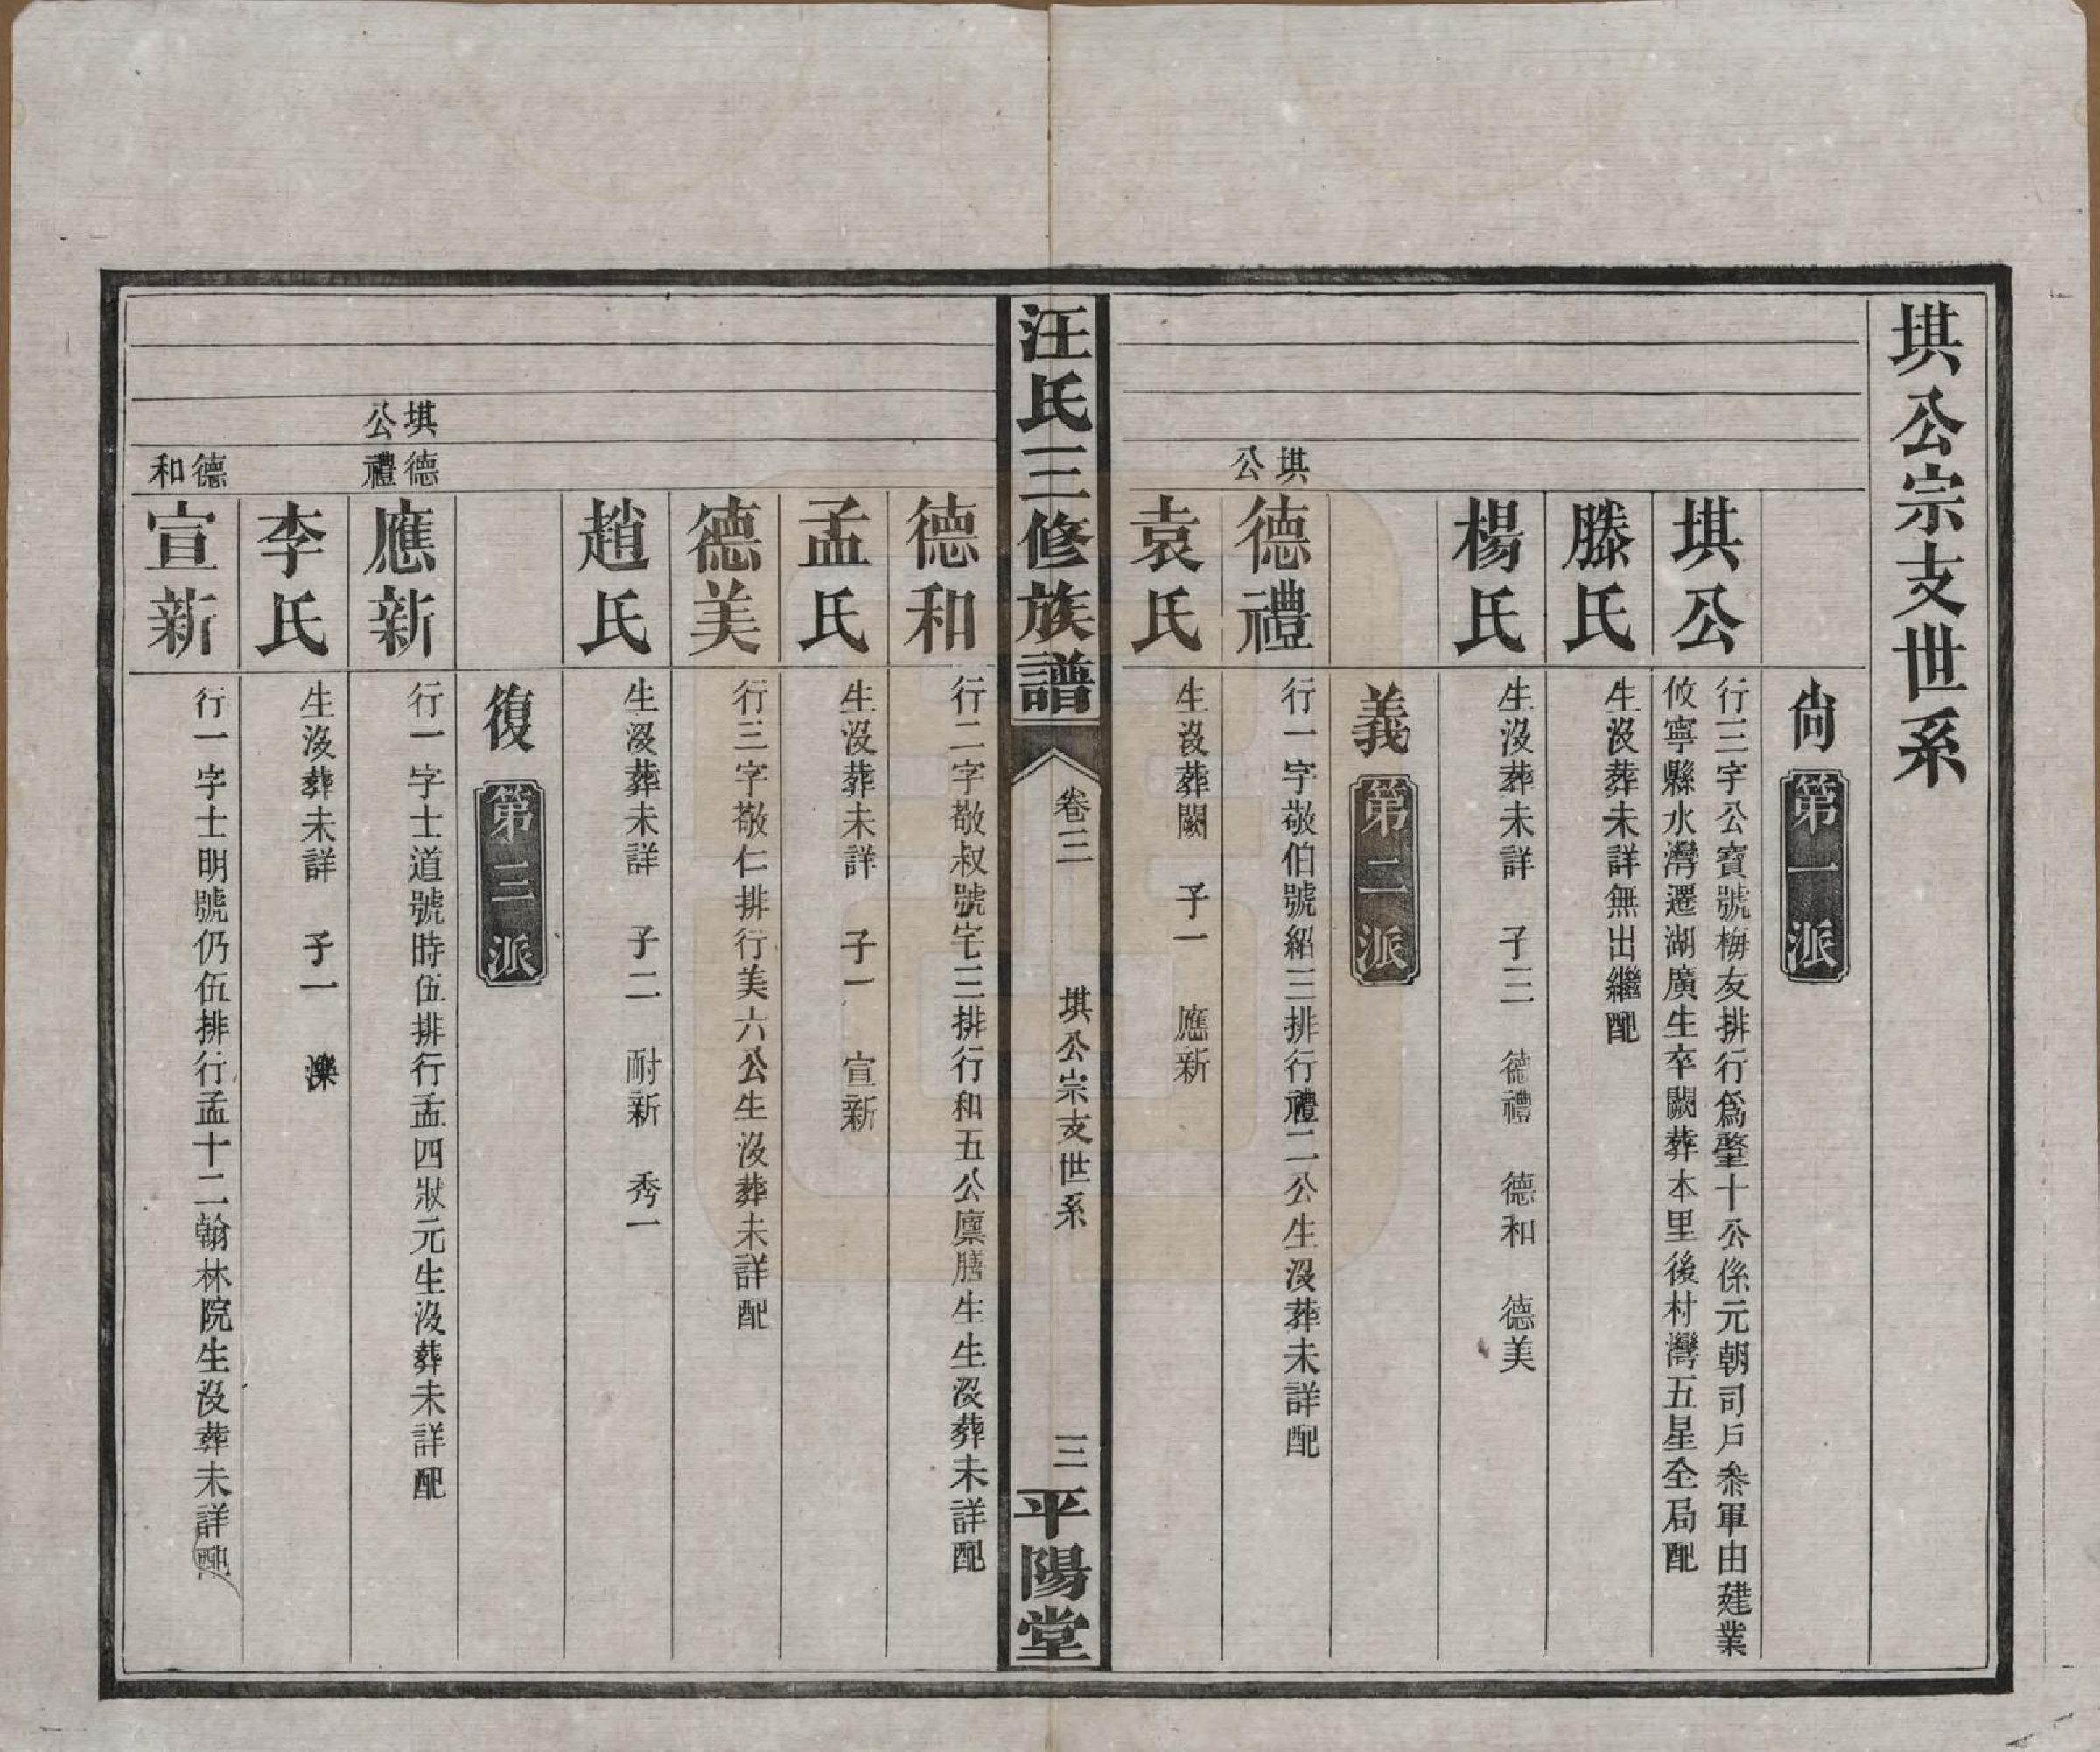 堪公宗支世系
尙 第一派
堪公
行三字公寶號梅友排行爲肇十公係元朝司戶叅軍由建業
攸寧縣水灣遷湖廣生卒闕葬本里後村灣五星全局配
滕氏
生沒葬未詳無出繼配
楊氏
生沒葬未詳 子三 德禮 德和 德美
義 第二派
堪公
德禮
行一字敬伯號紹三排行禮二公生沒葬未詳配
袁氏
生沒葬闕 子一 應新
汪氏三修族譜 卷三 堪公宗支世系 三 平陽堂
德和
行二字敬叔號宅三排行和五公廩膳生生沒葬未詳配
孟氏
生沒葬未詳 子一 宣新
德美
行三字敬仁排行美六公生沒葬未詳配
趙氏
生沒葬未詳 子二 耐新 秀一
復 第三派
堪公
德禮
應新
行一字士道號時伍排行孟四狀元生沒葬未詳配
李氏
生沒葬未詳 子一 濼
德和
宣新
行一字士明號仍伍排行孟十二翰林院生沒葬未詳配